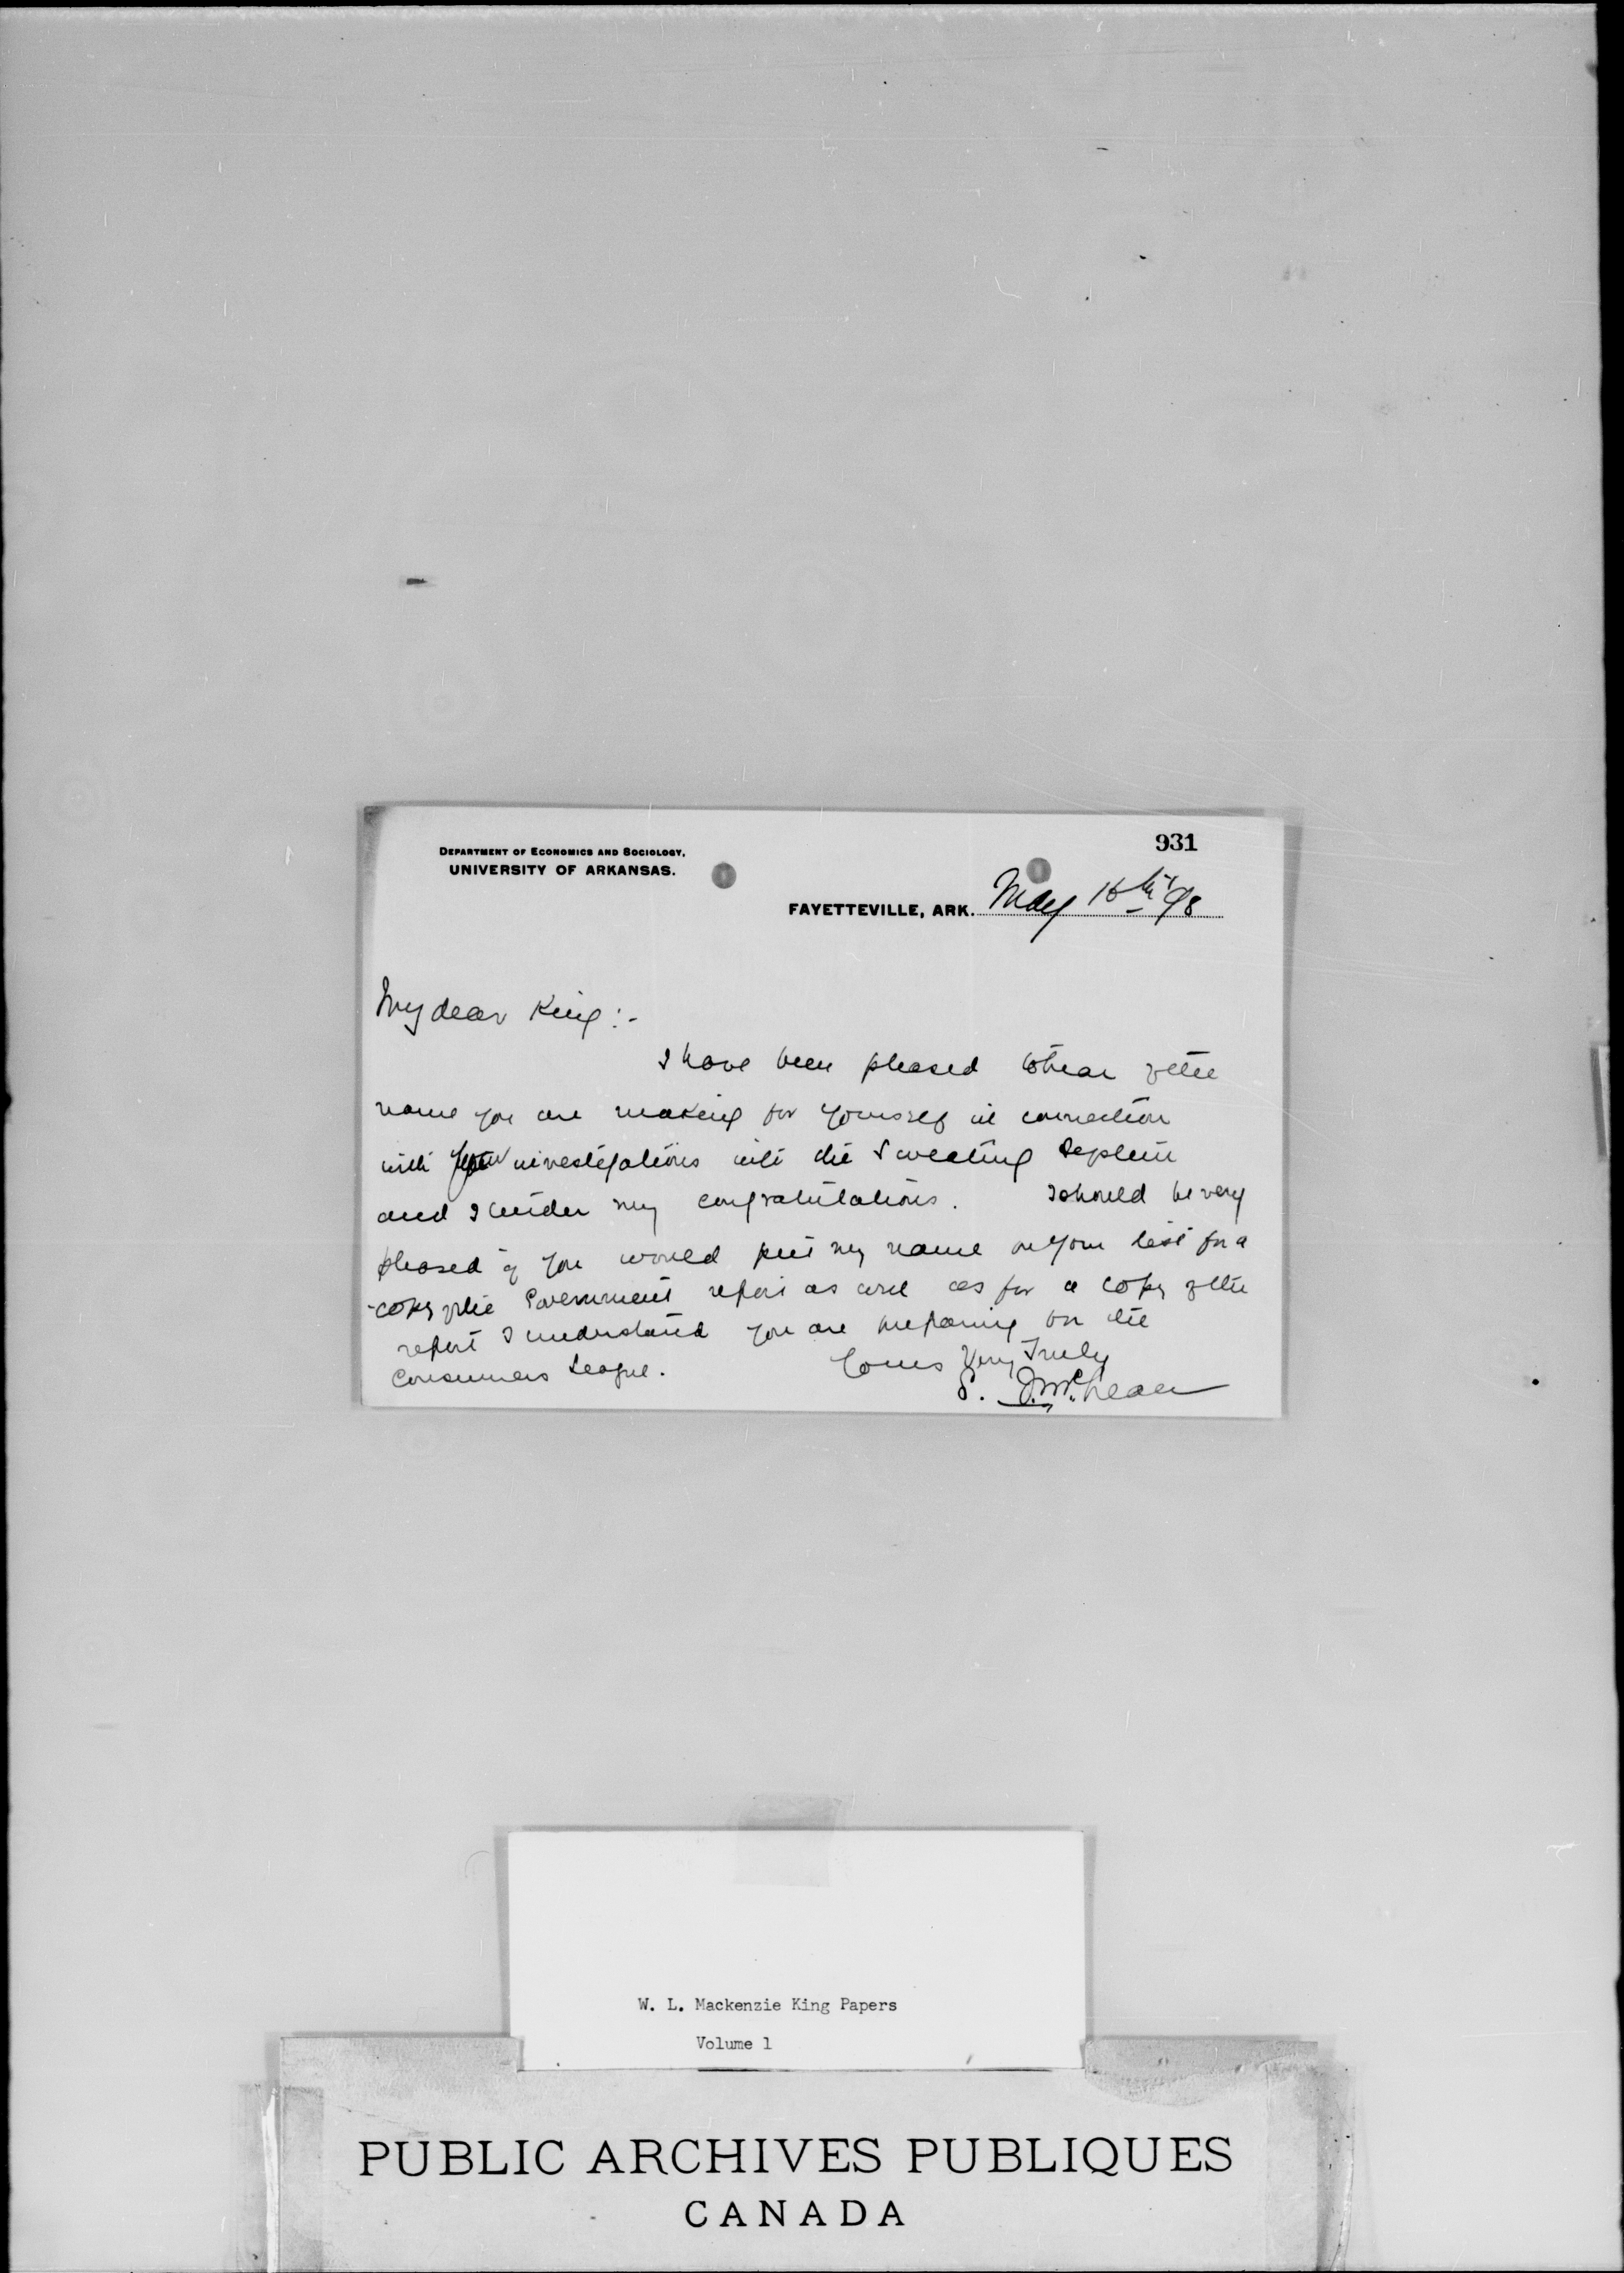 931
DEPARTMENT OF ECONOMICS AND SOCIOLOGY,
UNIVERSITY OF ARKANSAS.
FAYETTEVILLE, ARK. May 16th '98
My dear King :-
I have been pleased to hear of the
name you are making for yourself in connection
with your investigations into the Sweating System
and I tender my congratulations. I should be very
pleased if you would put my name on your list for a
copy of the Government report as well as for a copy of the
report I understand you are preparing on the
Consumers League.
Yours Very Truly
S. J. McLean
W. L. Mackenzie King Papers
Volume 1
PUBLIC ARCHIVES PUBLIQUES
CANADA